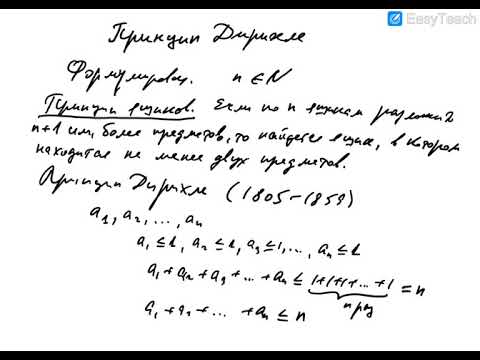 EasyTeach
Принцип Дирихле
Формулировки. n ∈ N
Принцип ящиков. Если по n ящикам разложить
n+1 или более предметов, то найдется ящик, в котором
находится не менее двух предметов.
Принцип Дирихле (1805-1859)
a₁, a₂, ..., aₙ
a₁ ≤ 1, a₂ ≤ 1, a₃ ≤ 1, ..., aₙ ≤ 1
a₁ + a₂ + a₃ + ... + aₙ ≤ 1+1+1+...+1 = n
n раз
a₁ + a₂ + ... + aₙ ≤ n